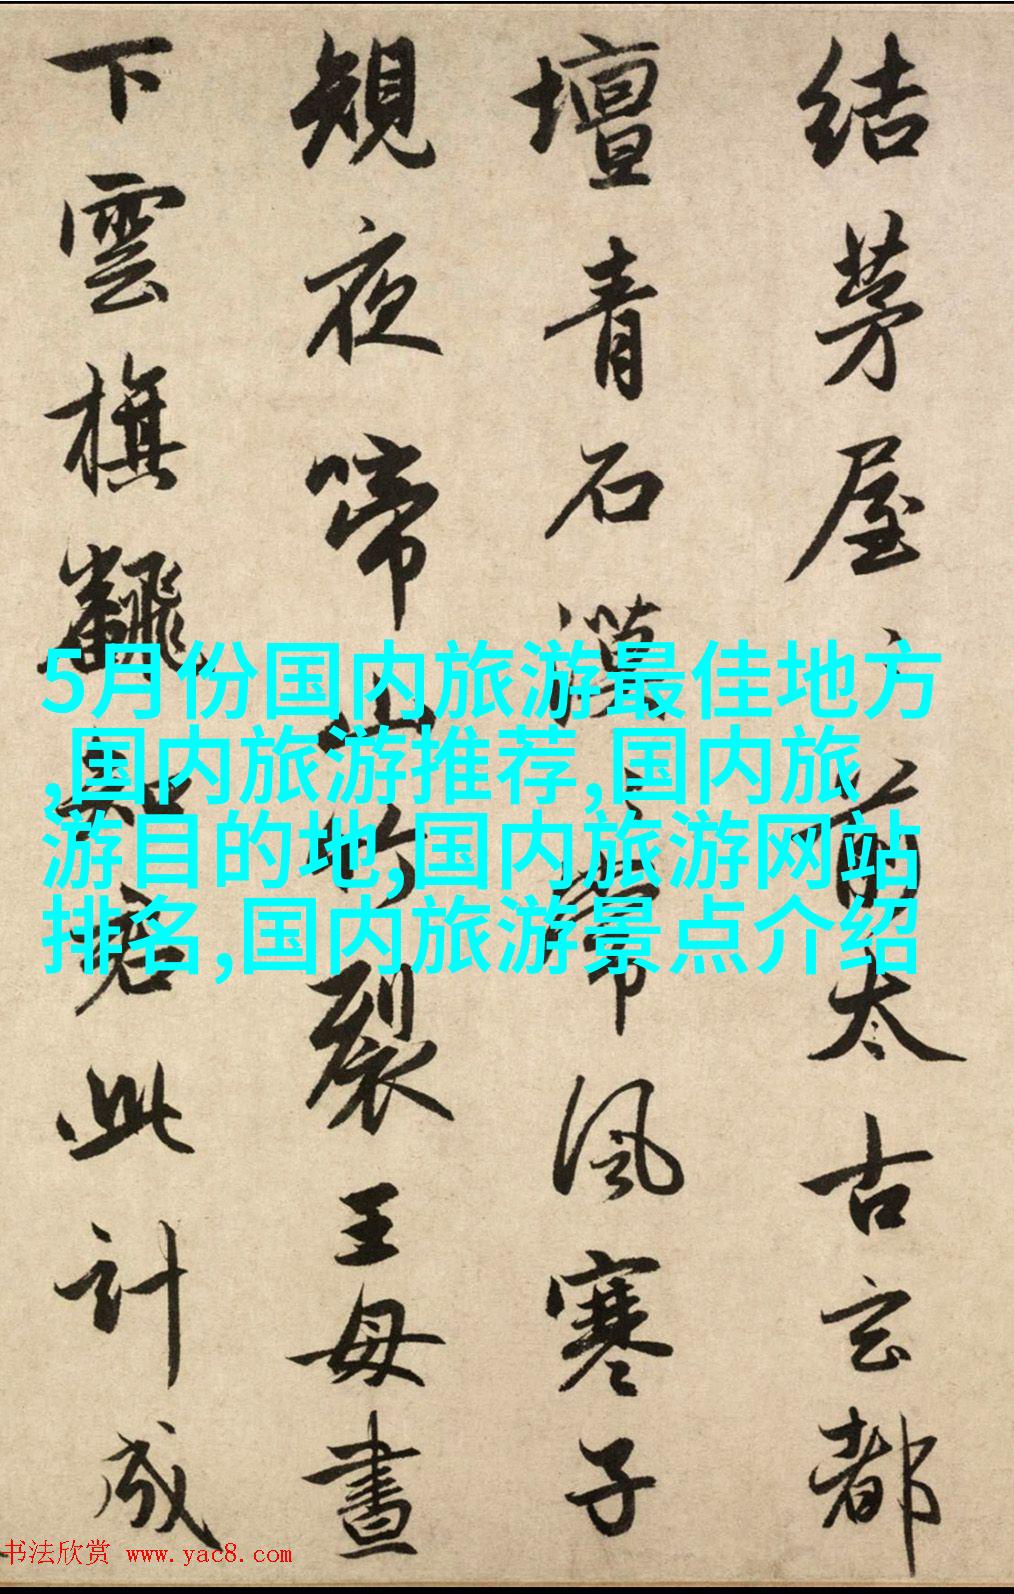 結茅屋〻前太古玄都
壇青石漠〻常風寒子
規夜啼山竹裂王母晝
下雲旗飜知君此計成
5月份国内旅游最佳地方
,国内旅游推荐,国内旅
游目的地,国内旅游网站
排名,国内旅游景点介绍
书法欣赏 www.yac8.com